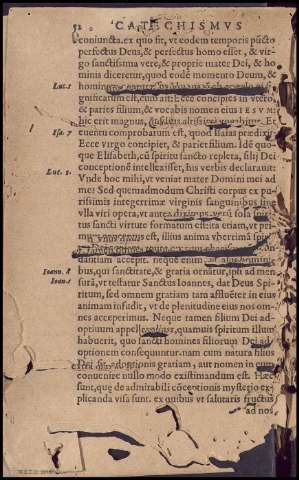 52 CATECHISMVS
coniuncta. ex quo fit, vt eodem temporis pũcto
perfectus Deus, & perfectus homo esset, & vir-
go sanctissima vere, & proprie mater Dei, & ho
minis diceretur, quod eodẽ momento Deum, &
Luc. 1 homi
gnificatum est, cum ait: Ecce concipies in vtero,
& paries filium, & vocabis nomen eius IESVM
hic erit magnus, & filius altissimi vocabitur. Et
Isa. 7 euentu comprobatum est, quod Isaias prædixit:
Ecce virgo concipiet, & pariet filium. Idẽ quo-
que Elisabeth, cũ spiritu sancto repleta, filij Dei
Luc. 1. conceptionẽ intellexisset, his verbis declarauit:
Vnde hoc mihi, vt veniat mater Domini mei ad
me? Sed quemadmodum Christi corpus ex pu-
rissimis integerrimæ virginis sanguinibus sine
vlla viri opera, vt antea diximus, verũ sola spiri-
tus sancti virtute formatum est: ita etiam, vt pri-
mum est, illius anima vberrimã spiri
dantiam accepit. neque enim
Ioann. 3 bus, qui sanctitate, & gratia ornatur, ipsi ad men-
Ioan. 1 surã, vt testatur Sanctus Ioannes, dat Deus Spi-
ritum, sed omnem gratiam tam affluẽter in eius
animam infudit, vt de plenitudine eius nos om-
nes acceperimus. Neque tamen filium Dei ad-
optiuum appellare quamuis spiritum illum
habuerit, quo sancti homines filiorum Dei ad-
optionem consequuntur. nam cum natura filius
adoptionis gratiam, aut nomen in eum
conuenire nullo modo existimandum est. Hæc
sunt, quæ de admirabili cõceptionis mysterio ex-
plicanda visa sunt. ex quibus vt salutaris fructus
ad nos